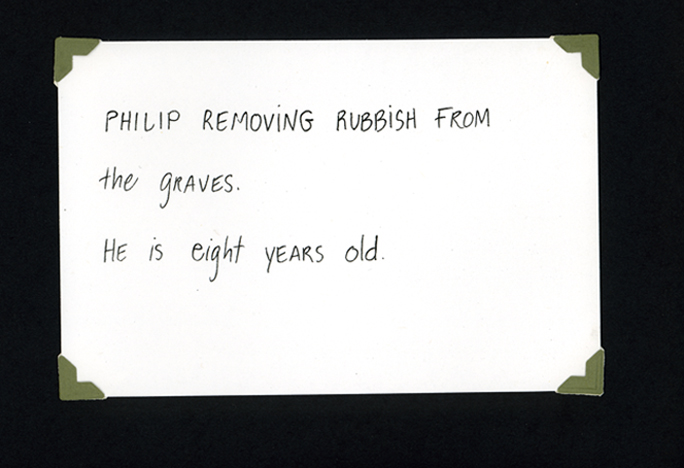 PHILIP REMOVING RUBBISH FROM
the gRAVES.
HE is eight yEARS old.